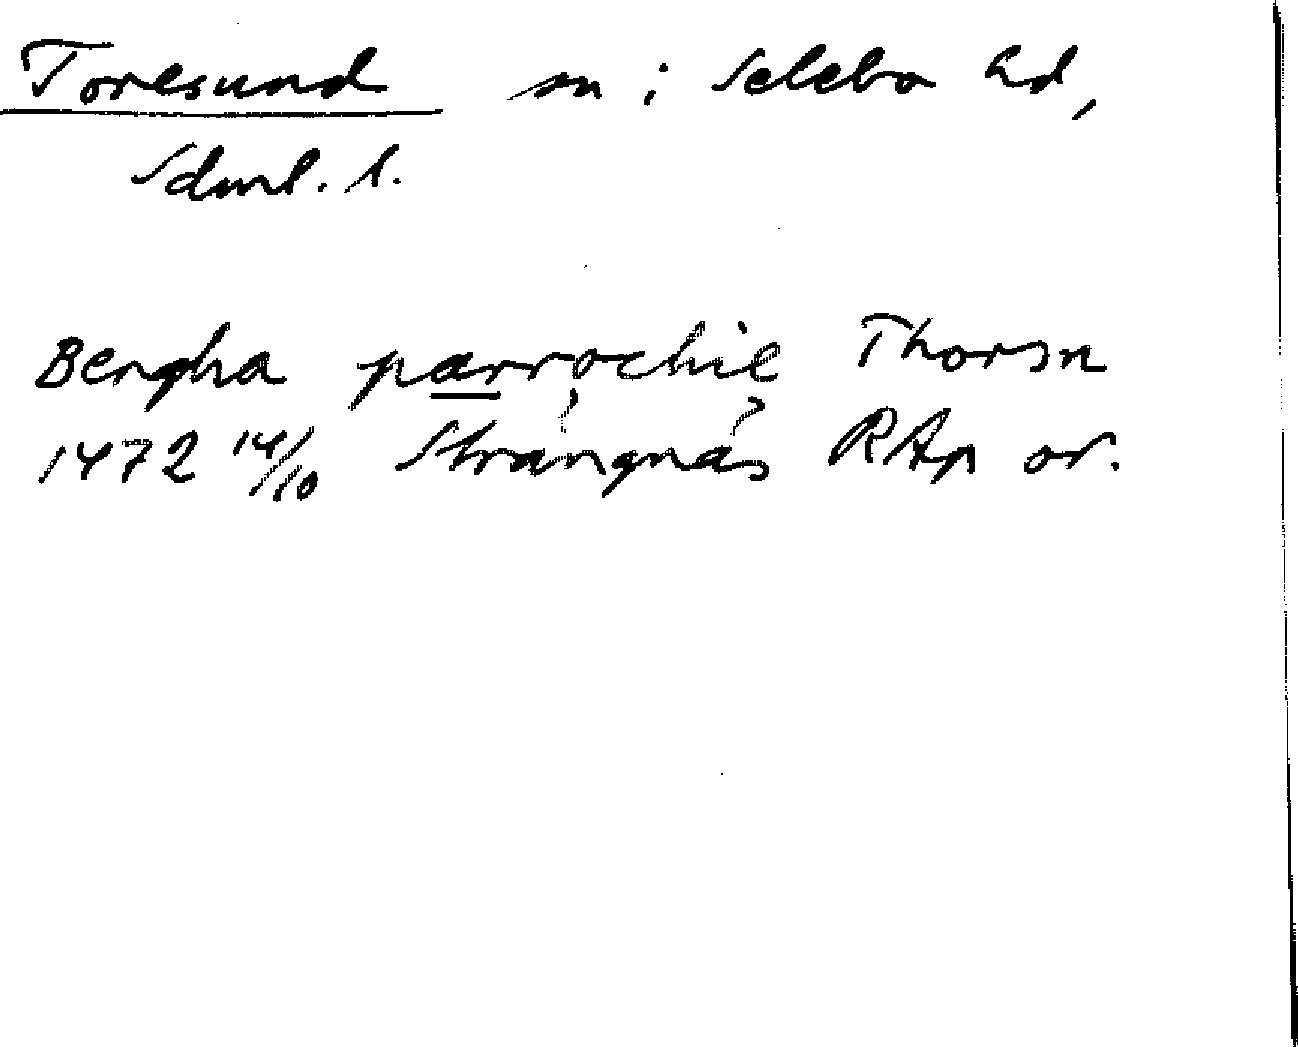 Toresund sn i Selebo hd,
Sdml. l.
Bergha parrochie Thorsn
1472 14/10 Strängnäs RAp or.